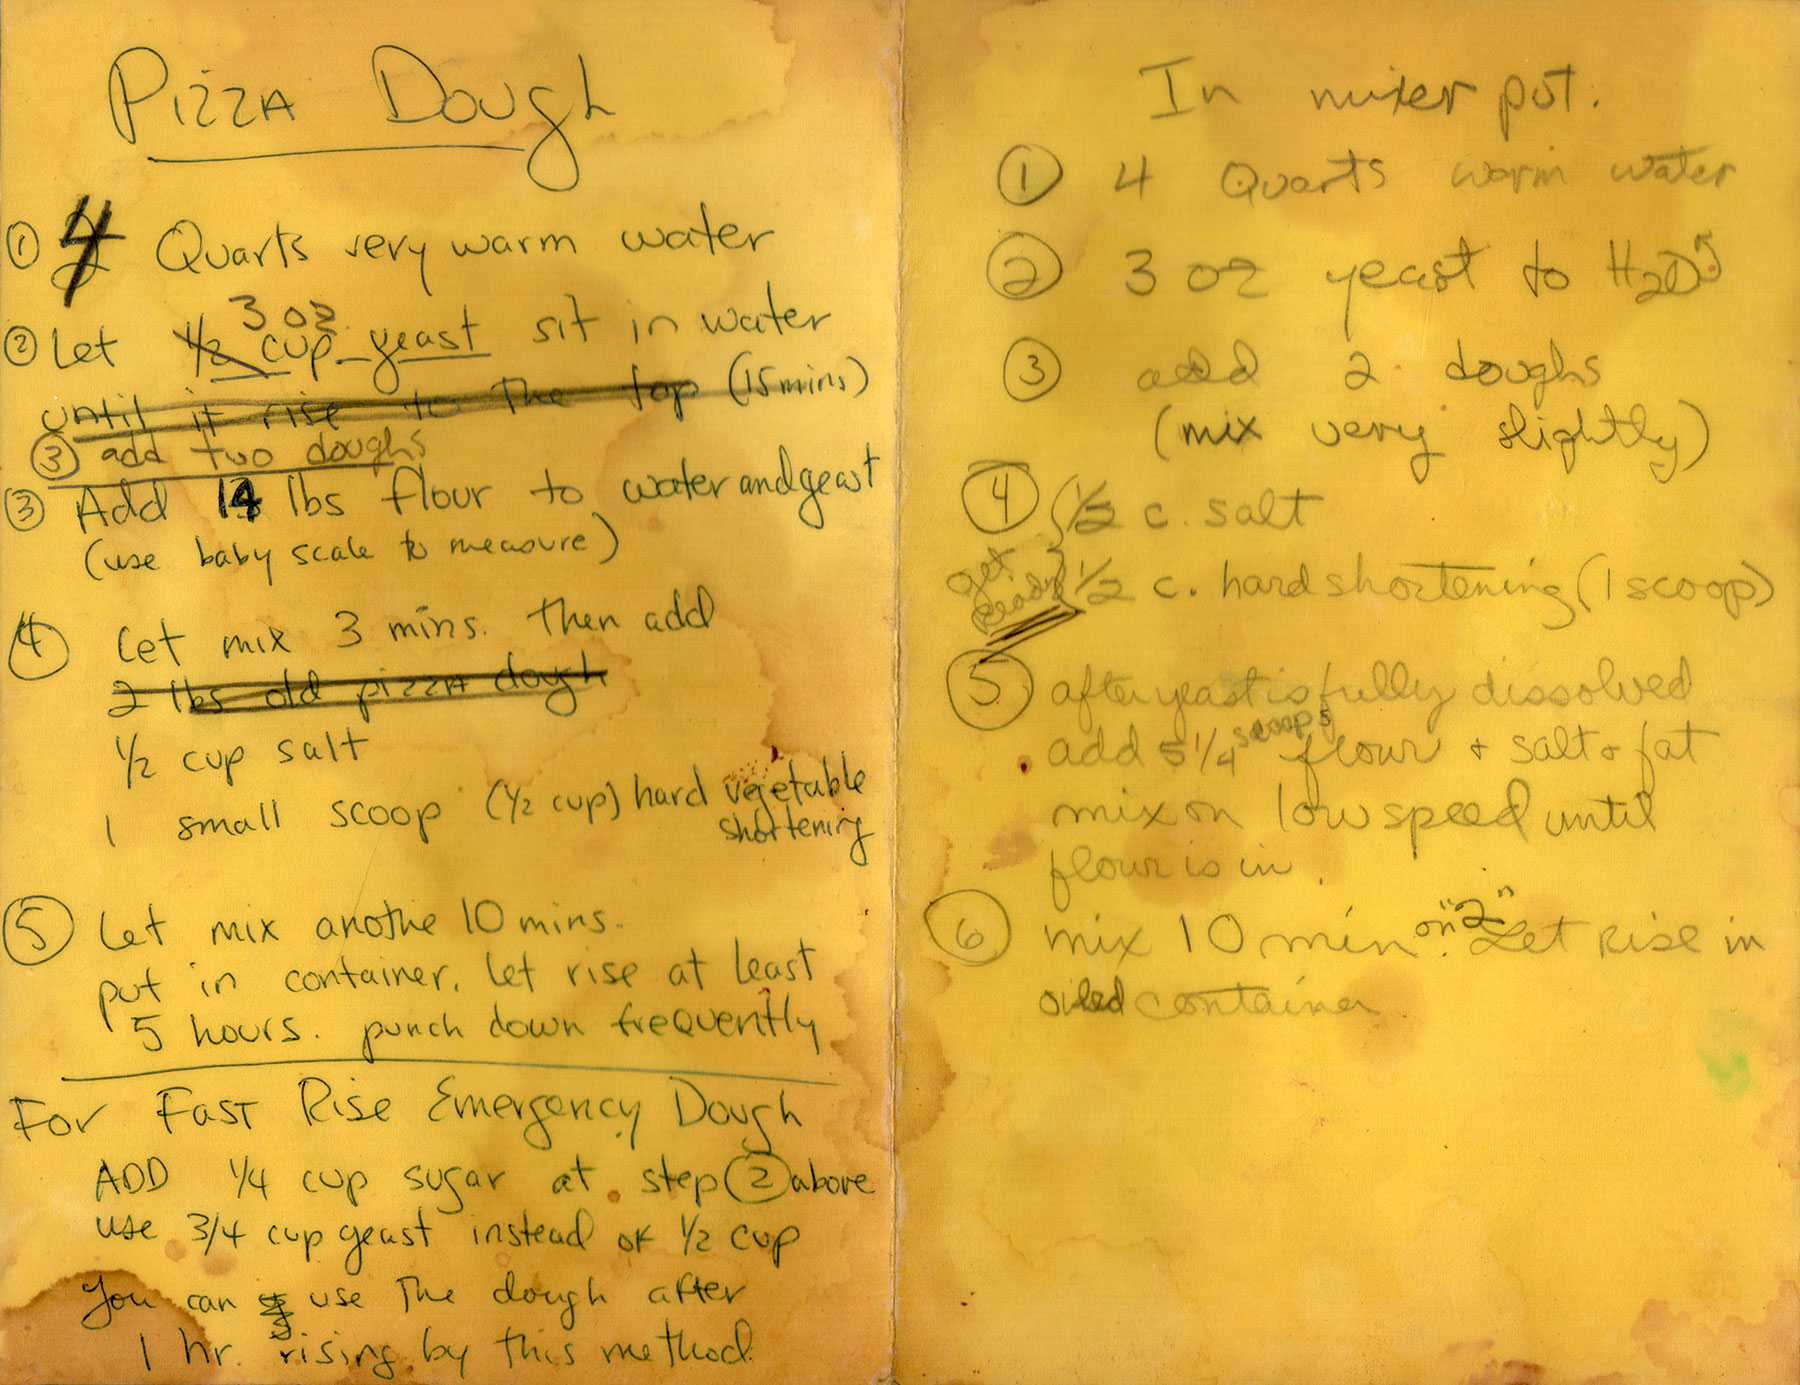 Pizza Dough
① 4 Quarts very warm water
3 oz
② Let 1/2 cup yeast sit in water
until it rise to the top (15 mins)
③ add two doughs
③ Add 14 lbs flour to water and yeast
(use baby scale to measure)
④ Let mix 3 mins. then add
2 lbs old pizza dough
1/2 cup salt
1 small scoop (1/2 cup) hard vegetable
shortening
⑤ Let mix anothe 10 mins.
put in container. Let rise at least
5 hours. punch down frequently
For Fast Rise Emergency Dough
ADD 1/4 cup sugar at step ② above
use 3/4 cup yeast instead of 1/2 cup
You can use the dough after
1 hr. rising by this method.
In mixer put.
① 4 Quarts warm water
② 3 oz yeast to H2O
③ add 2 doughs
(mix very slightly)
④ 1/2 c. salt
get ready 1/2 c. hard shortening (1 scoop)
⑤ after yeast is fully dissolved
scoops
add 5 1/4 flour + salt + fat
mix on low speed until
flour is in.
⑥ mix 10 min on "2". Let Rise in
oiled container